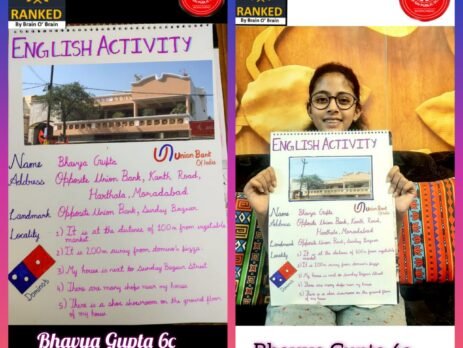 RANKED
By Brain O' Brain
ENGLISH ACTIVITY
Union Bank
Of India
Name Bhavya Gupta
Address Opposite Union Bank, Kanth Road,
Harthala, Moradabad
Landmark Opposite Union Bank, Sunday Bazaar
Locality 1) It is at the distance of 100m from vegetable
market.
2) It is 200m away from domino's pizza.
3) My house is next to Sunday Bazaar Street
4) There are many shops near my house
5) There is a shoe showroom on the ground floor
of my house.
Domino's
Bhavya Gupta 6c
RANKED
By Brain O' Brain
ENGLISH ACTIVITY
Union Bank
Of India
Name Bhavya Gupta
Address Opposite Union Bank, Kanth Road,
Harthala, Moradabad
Landmark Opposite Union Bank, Sunday Bazaar
Locality 1) It is at the distance of 100m from vegetable
market.
2) It is 200m away from domino's pizza.
3) My house is next to Sunday Bazaar Street
4) There are many shops near my house
5) There is a shoe showroom on the ground floor
of my house.
Domino's
Bhavya Gupta 6c